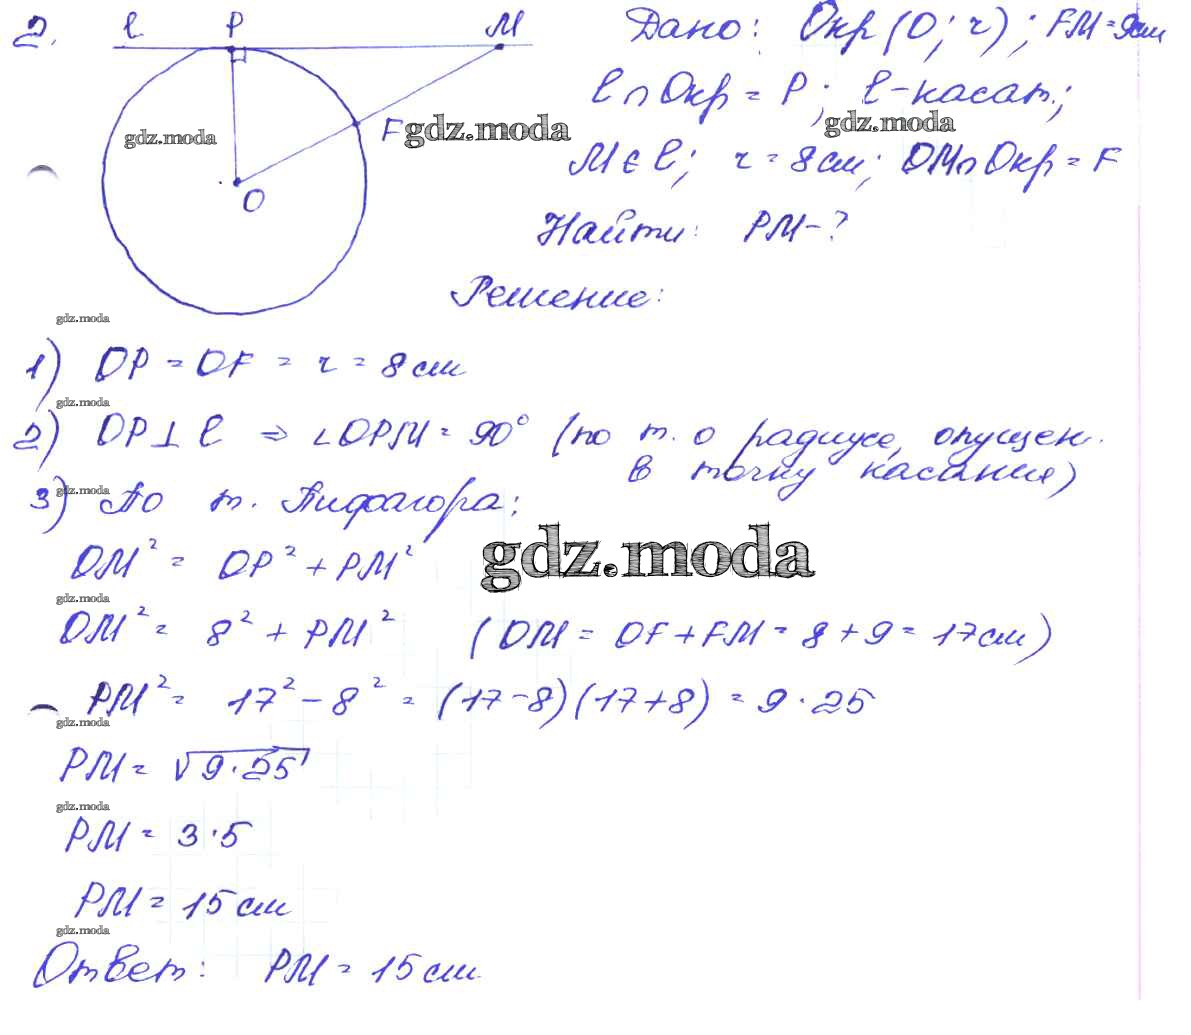 2.
l P M
Дано: Окр(O; r); FM = 9см
l ∩ Окр = P; l - касат.;
F
gdz.moda gdz.moda gdz.moda
M ∈ l; r = 8 см; OM ∩ Окр = F
O
Найти: PM - ?
Решение:
gdz.moda
1) OP = OF = r = 8 см
gdz.moda
2) OP ⊥ l ⇒ ∠OPM = 90° (по т. о радиусе, опущен.
в точку касания)
gdz.moda
3) По т. Пифагора:
OM² = OP² + PM²
gdz.moda
gdz.moda
OM² = 8² + PM² (OM = OF + FM = 8 + 9 = 17 см)
PM² = 17² - 8² = (17 - 8)(17 + 8) = 9 · 25
gdz.moda
PM = √9 · 25
gdz.moda
PM = 3 · 5
PM = 15 см
gdz.moda
Ответ: PM = 15 см